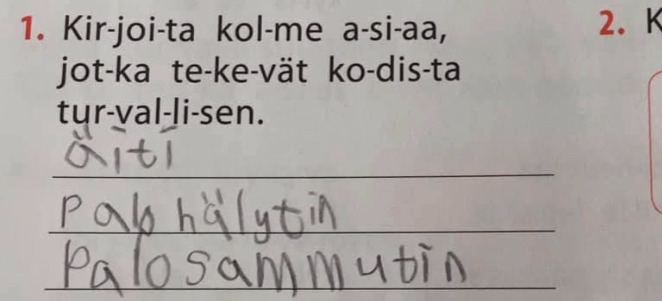 1. Kir-joi-ta kol-me a-si-aa,
jot-ka te-ke-vät ko-dis-ta
tur-val-li-sen.
äiti
Palohälytin
Palosammutin
2. K